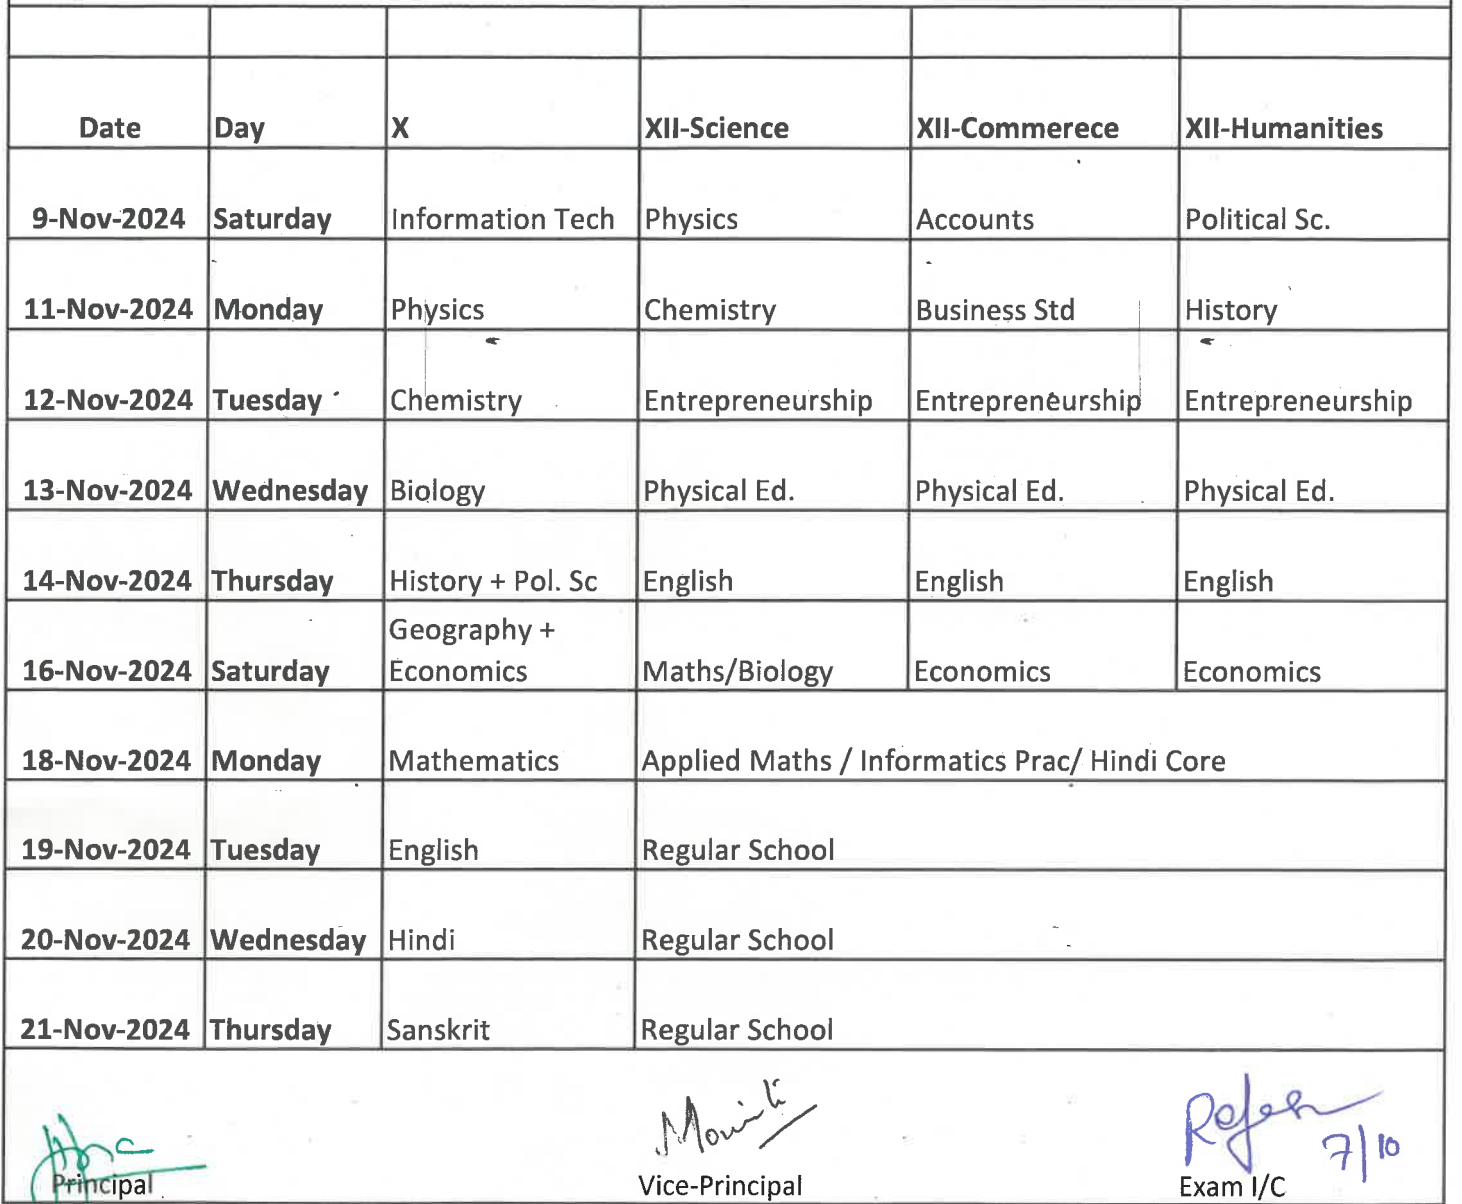 Date Day X XII-Science XII-Commerece XII-Humanities
9-Nov-2024 Saturday Information Tech Physics Accounts Political Sc.
11-Nov-2024 Monday Physics Chemistry Business Std History
12-Nov-2024 Tuesday Chemistry Entrepreneurship Entrepreneurship Entrepreneurship
13-Nov-2024 Wednesday Biology Physical Ed. Physical Ed. Physical Ed.
14-Nov-2024 Thursday History + Pol. Sc English English English
Geography +
16-Nov-2024 Saturday Economics Maths/Biology Economics Economics
18-Nov-2024 Monday Mathematics Applied Maths / Informatics Prac/ Hindi Core
19-Nov-2024 Tuesday English Regular School
20-Nov-2024 Wednesday Hindi Regular School
21-Nov-2024 Thursday Sanskrit Regular School
7/10
Principal Vice-Principal Exam I/C